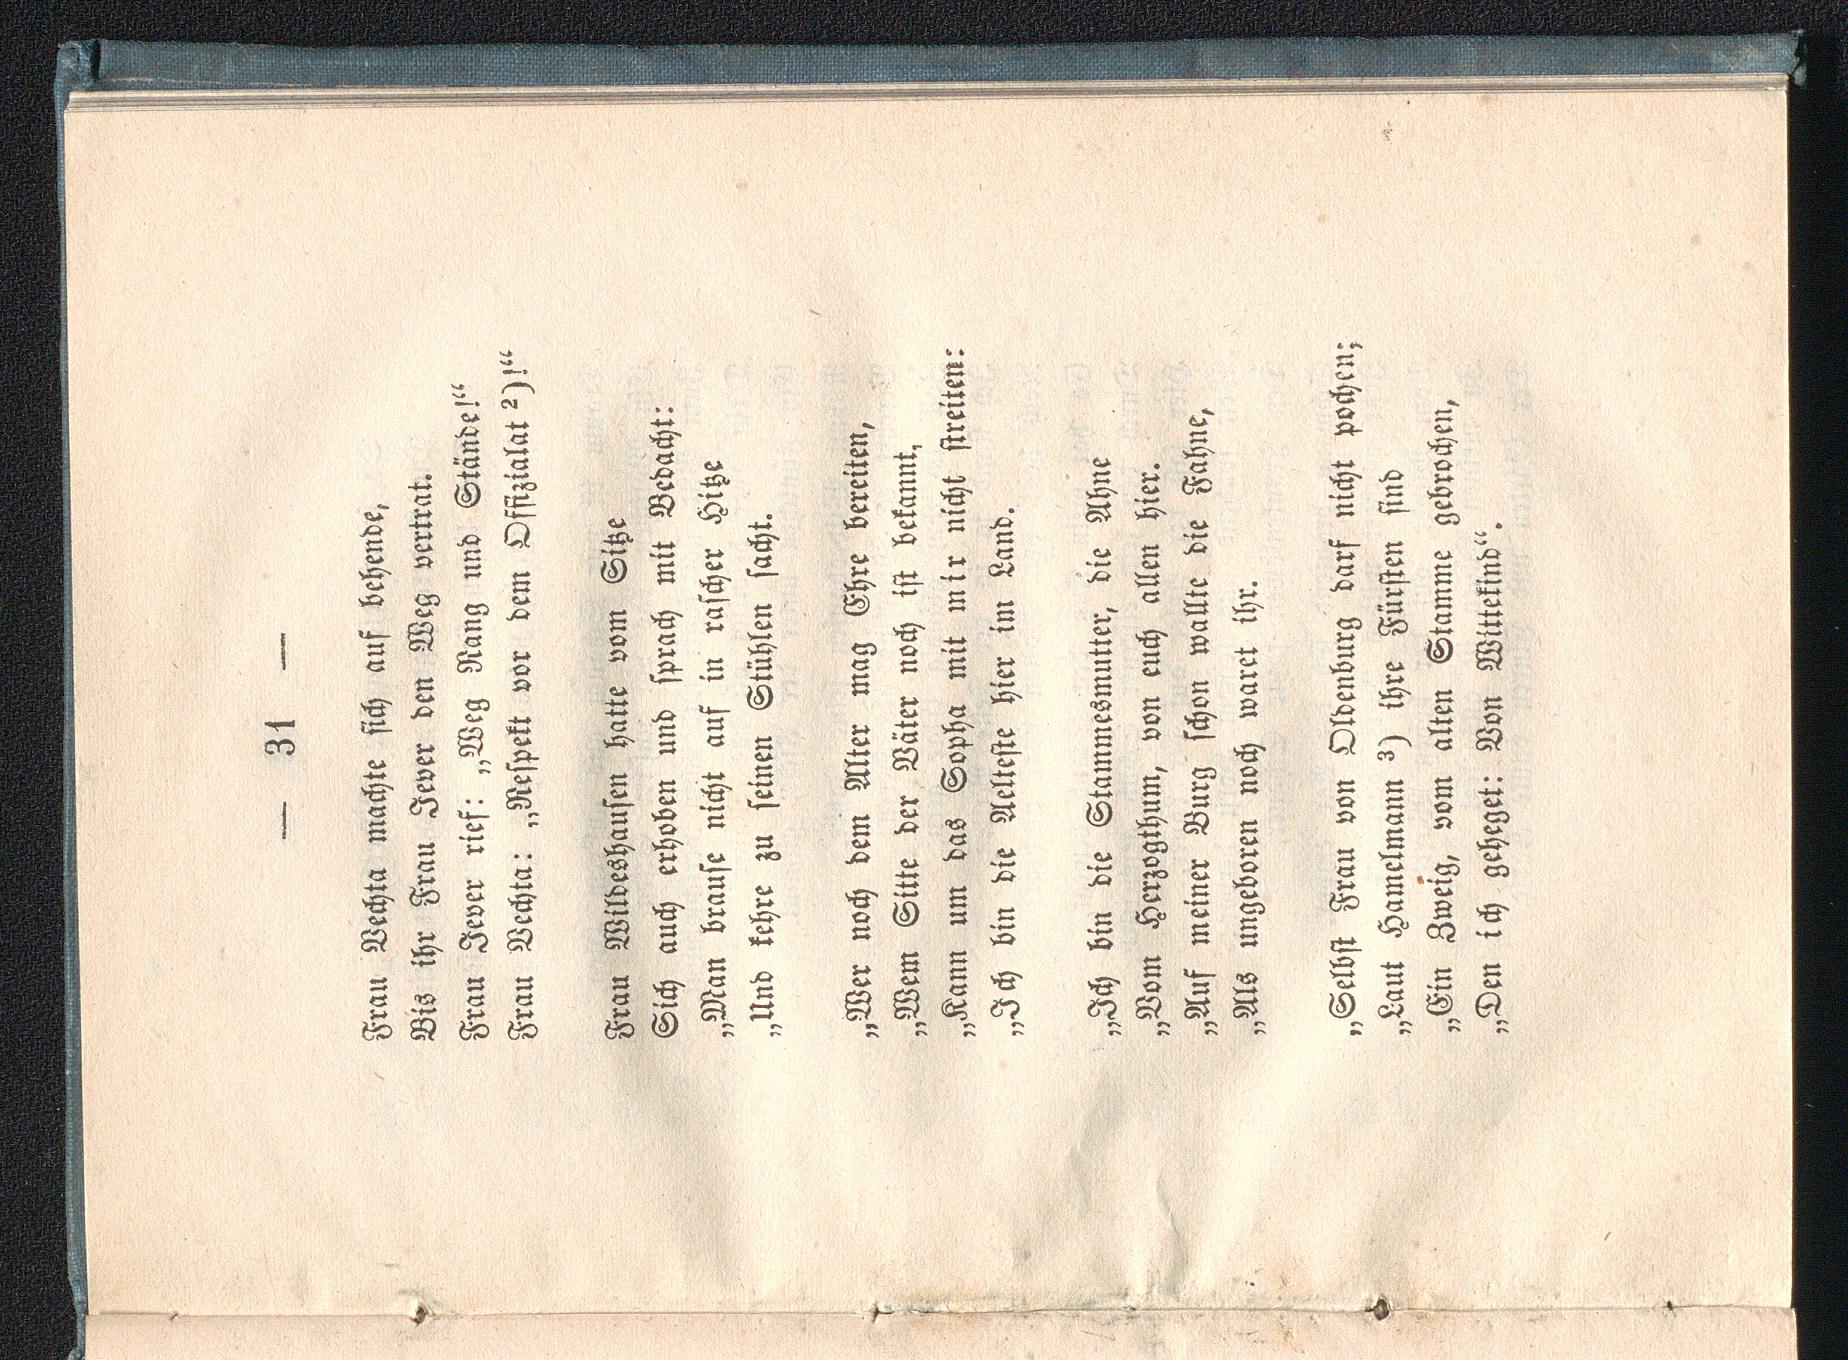 — 31 —
Frau Vechta machte sich auf behende,
Bis ihr Frau Jever den Weg vertrat.
Frau Jever rief: „Weg Rang und Stände!“
Frau Vechta: „Respekt vor dem Offizialat ²)!“
Frau Wildeshausen hatte vom Sitze
Sich auch erhoben und sprach mit Bedacht:
„Man brause nicht auf in rascher Hitze
„Und kehre zu seinen Stühlen sacht.
„Wer noch dem Alter mag Ehre bereiten,
„Wem Sitte der Väter noch ist bekannt,
„Kann um das Sopha mit mir nicht streiten:
„Ich bin die Aelteste hier im Land.
„Ich bin die Stammesmutter, die Ahne
„Vom Herzogthum, von euch allen hier.
„Auf meiner Burg schon wallte die Fahne,
„Als ungeboren noch waret ihr.
„Selbst Frau von Oldenburg darf nicht pochen;
„Laut Hamelmann ³) ihre Fürsten sind
„Ein Zweig, vom alten Stamme gebrochen,
„Den ich geheget: Von Wittekind“.